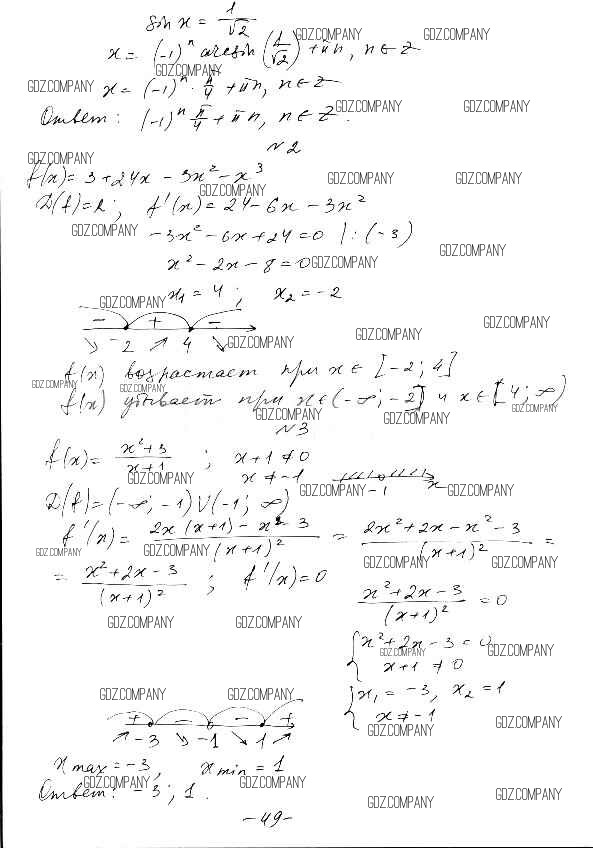 sin x = 1/√2
x = (-1)ⁿ arcsin (1/√2) + πn, n ∈ Z
x = (-1)ⁿ · π/4 + πn, n ∈ Z
Ответ: (-1)ⁿ π/4 + πn, n ∈ Z.
№2
f(x) = 3 + 24x - 3x² - x³
D(f) = R; f'(x) = 24 - 6x - 3x²
-3x² - 6x + 24 = 0 |: (-3)
x² - 2x - 8 = 0
x₁ = 4; x₂ = -2
- + -
↘ -2 ↗ 4 ↘
f(x) возрастает при x ∈ [-2; 4]
f(x) убывает при x ∈ (-∞; -2] и x ∈ [4; ∞)
№3
f(x) = (x²+3)/(x+1); x+1 ≠ 0
x ≠ -1
-1 x
D(f) = (-∞; -1) ∪ (-1; ∞)
f'(x) = (2x(x+1) - x² - 3)/(x+1)² = (2x² + 2x - x² - 3)/(x+1)² =
= (x² + 2x - 3)/(x+1)²; f'(x) = 0
(x² + 2x - 3)/(x+1)² = 0
{ x² + 2x - 3 = 0
x + 1 ≠ 0
{ x₁ = -3, x₂ = 1
x ≠ -1
+ - - +
↗ -3 ↘ -1 ↘ 1 ↗
x max = -3; x min = 1
Ответ: -3; 1.
-49-
GDZ.COMPANY